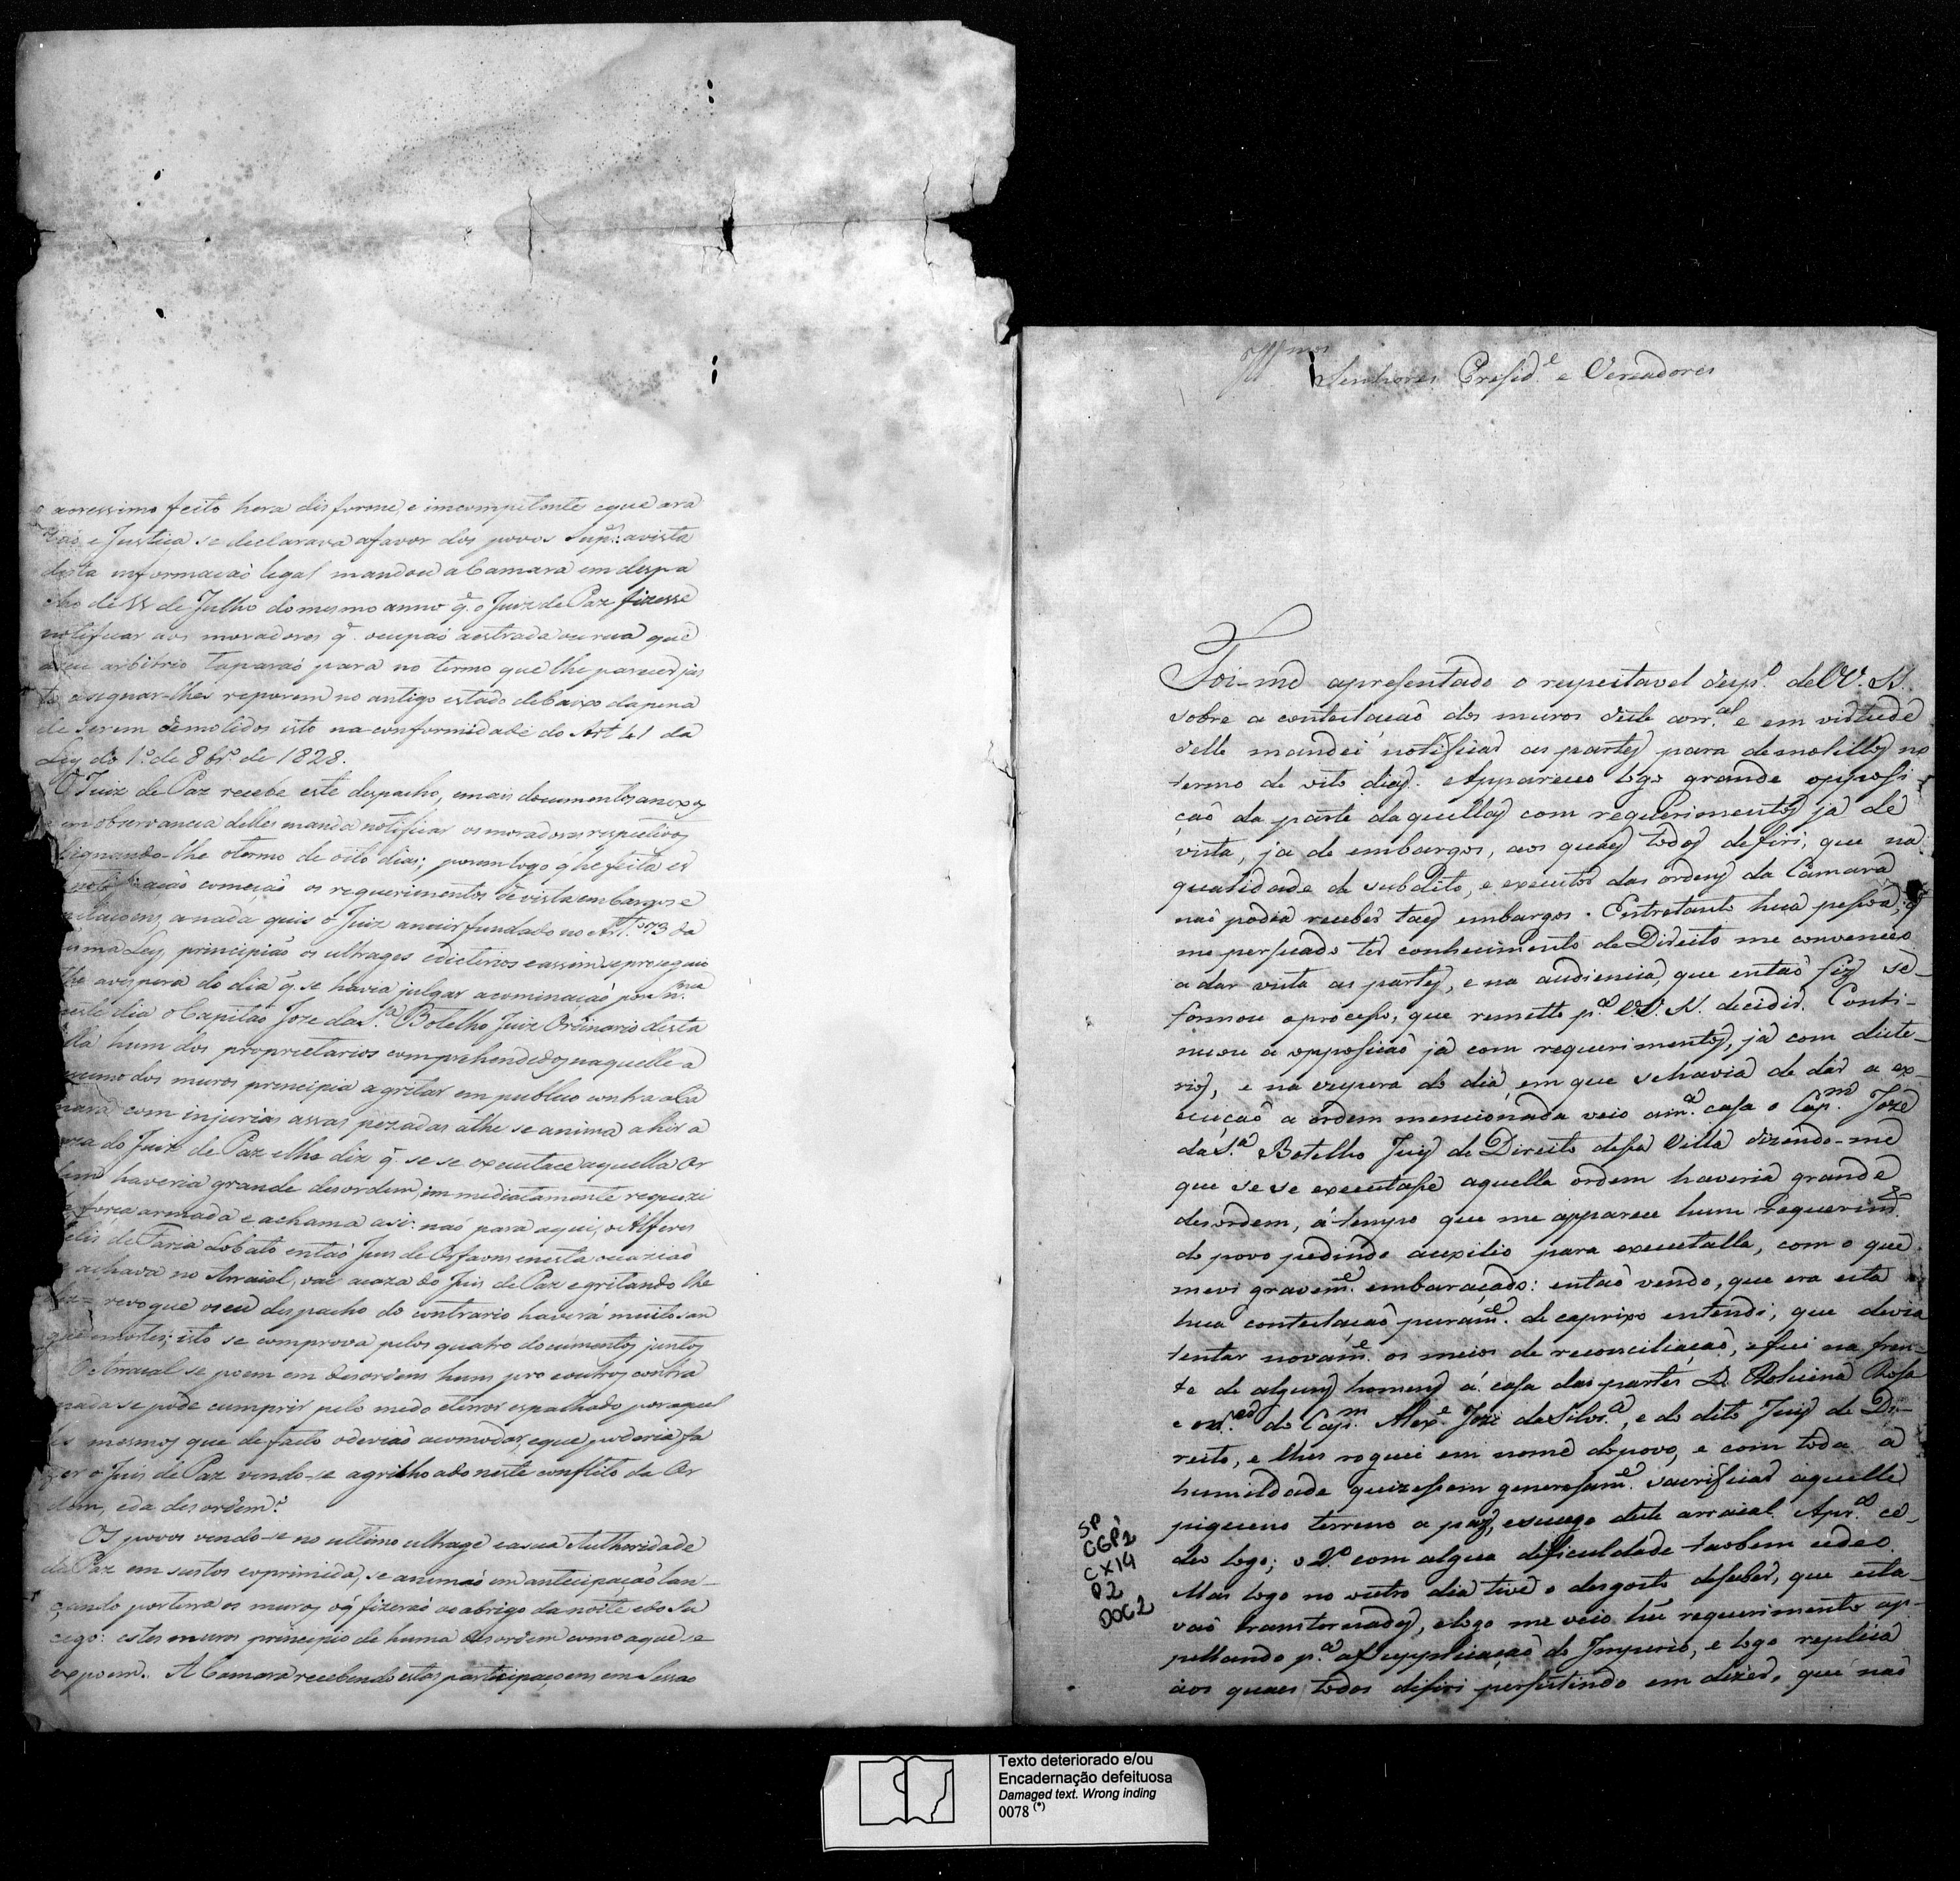 acressimo feito hera disforme e imcompetente eque ara
zaõ e Justiça se declarava afavor dos povos Sup.es: avista
desta informaçaõ legal mandou aCamara em despa
cho de 11 de Julho do mesmo anno q̃ o Juiz de Paz fizesse
notificar aos moradores q̃ ocupaõ aestrada ou rua que
aseu arbitrio taparaõ para no termo que lhe parecer jus
to asignar-lhes reporem no antigo estado debaixo dapena
de serem demolidos isto na conformidade do Art 41 da
Ley do 1.º de 8br.º de 1828.
O Juiz de Paz recebe este despacho, emais documentos anexos
e em observancia delles manda notificar os moradores respectivos
signando-lhe otermo de oito dias; porem logo q̃ he feita es
notificaçaõ começaõ os requerimentos de vista embargos e
anada quis o Juiz anuir fundado no Art.º 73 da
mesma Ley, principiaõ os ultrages edicterios eassim se proseguio
the avespora do dia q̃ se havia julgar acominaçaõ por Sn.ça
neste dia oCapitaõ Joze daS.ª Botelho Juiz Ordinario desta
Villa hum dos proprietarios comprehendidos naquelle a
cimo dos muros principia agritar em publico contra aCa
mara com injurias assas pezadas athe se anima ahir a
caza do Juiz de Paz elhe diz q̃ se se executace aquella Or
dem haveria grande desordem, immediatamente
força armada e achama asi: naõ para aqui, oAlferes
de Faria Lobato entaõ Juis de Orfaons enesta ocaziaõ
achava no Arraial, vai acaza do Juis de Paz egritando lhe
diz = revogue oseu despacho do contrario haverá muito san
gue emortes; isto se comprova pelos quatro documentos juntos
O Arraial se poem em desordens huns pro eoutros contra
nada se pode cumprir pelo medo eterror espalhado poraquel
les mesmos que de facto oderiaõ acomodar, eque poderia fa
zer o Juis de Paz vendo-se agrilhoado neste conflito da Or
dem, eda desordem?
Os povos vendo-se no ultimo ultrage easua Authoridade
de Paz em sustos exprimida, se animaõ em antecipaçaõ lan-
çando porterra os muros oq̃ fizeraõ ao abrigo da noite edo So
cego: estes muros principio de huma desordem como aque se
expoem. A Camara recebendo estas participaçoens em Sessaõ
Ill.mos Senhores Presid.e e Vereadores
Foi-me apresentado o respeitavel desp.º de VV. SS.
sobre a contestaçaõ dos muros deste arr.al e em virtude
delle mandei notificar as partes para demolillos no
termo de oito dias. Appareceo logo grande opposi-
çaõ da parte daquelles com requerimentos ja de
vista, ja de embargos, aos quaes todos defiri, que na
qualidade de subdito, e executor das ordens da Câmara
naõ podia receber taes embargos. Entretanto hua pessoa, q̃
me persuado ter conhecimento de Direito me convenceo
a dar vista as partes, e na audiencia, que entaõ fiz se
formou o processo, que remetto p.ª VV. SS. decidir. Conti-
nuou a opposiçaõ já com requerimentos, já com dicte-
rios, e na vespera do dia, em que sehavia de dar a ex-
ecuçaõ a ordem mencionada veio am.ª casa o Cap.m Joze
daS.ª Botelho Juiz de Direito dessa Villa dizendo-me
que se se executasse aquella ordem haveria grande
desordem, á tempo que me apparece hum requerim.to
do povo pedindo auxilio para executalla, com o que
mevi gravem.e embaraçado: entaõ vendo, que era esta
hua contestaçaõ puram.e de caprixo entendi, que devia
tentar novam.e os meios de reconciliaçaõ, efui na fren-
te de alguns homens á casa das partes D. Rosa
e do Cap.m Alex.e Joze da Silvr.ª, e do dito Juiz de Di-
reito, e lhes roguei em nome dopovo, e com toda a
humildade quizessem generosam.e sacrificar aquelle
piqueno terreno a paz, esucego deste arraial. Apr.ª ce-
deo logo; o 2.º com algua dificuldade taobem cedeo.
Mas logo no outro dia tive o desgosto desaber, que esta-
vaõ transtornados, elogo me veio hũ requerimento ap-
pellando p.ª aSupplicaçaõ do Imperio, e logo replica
aos quaes todos defiri persistindo em dizer, que naõ
SP
CGP2
CX14
P2
DOC2
Texto deteriorado e/ou
Encadernação defeituosa
Damaged text. Wrong inding
0078 (*)